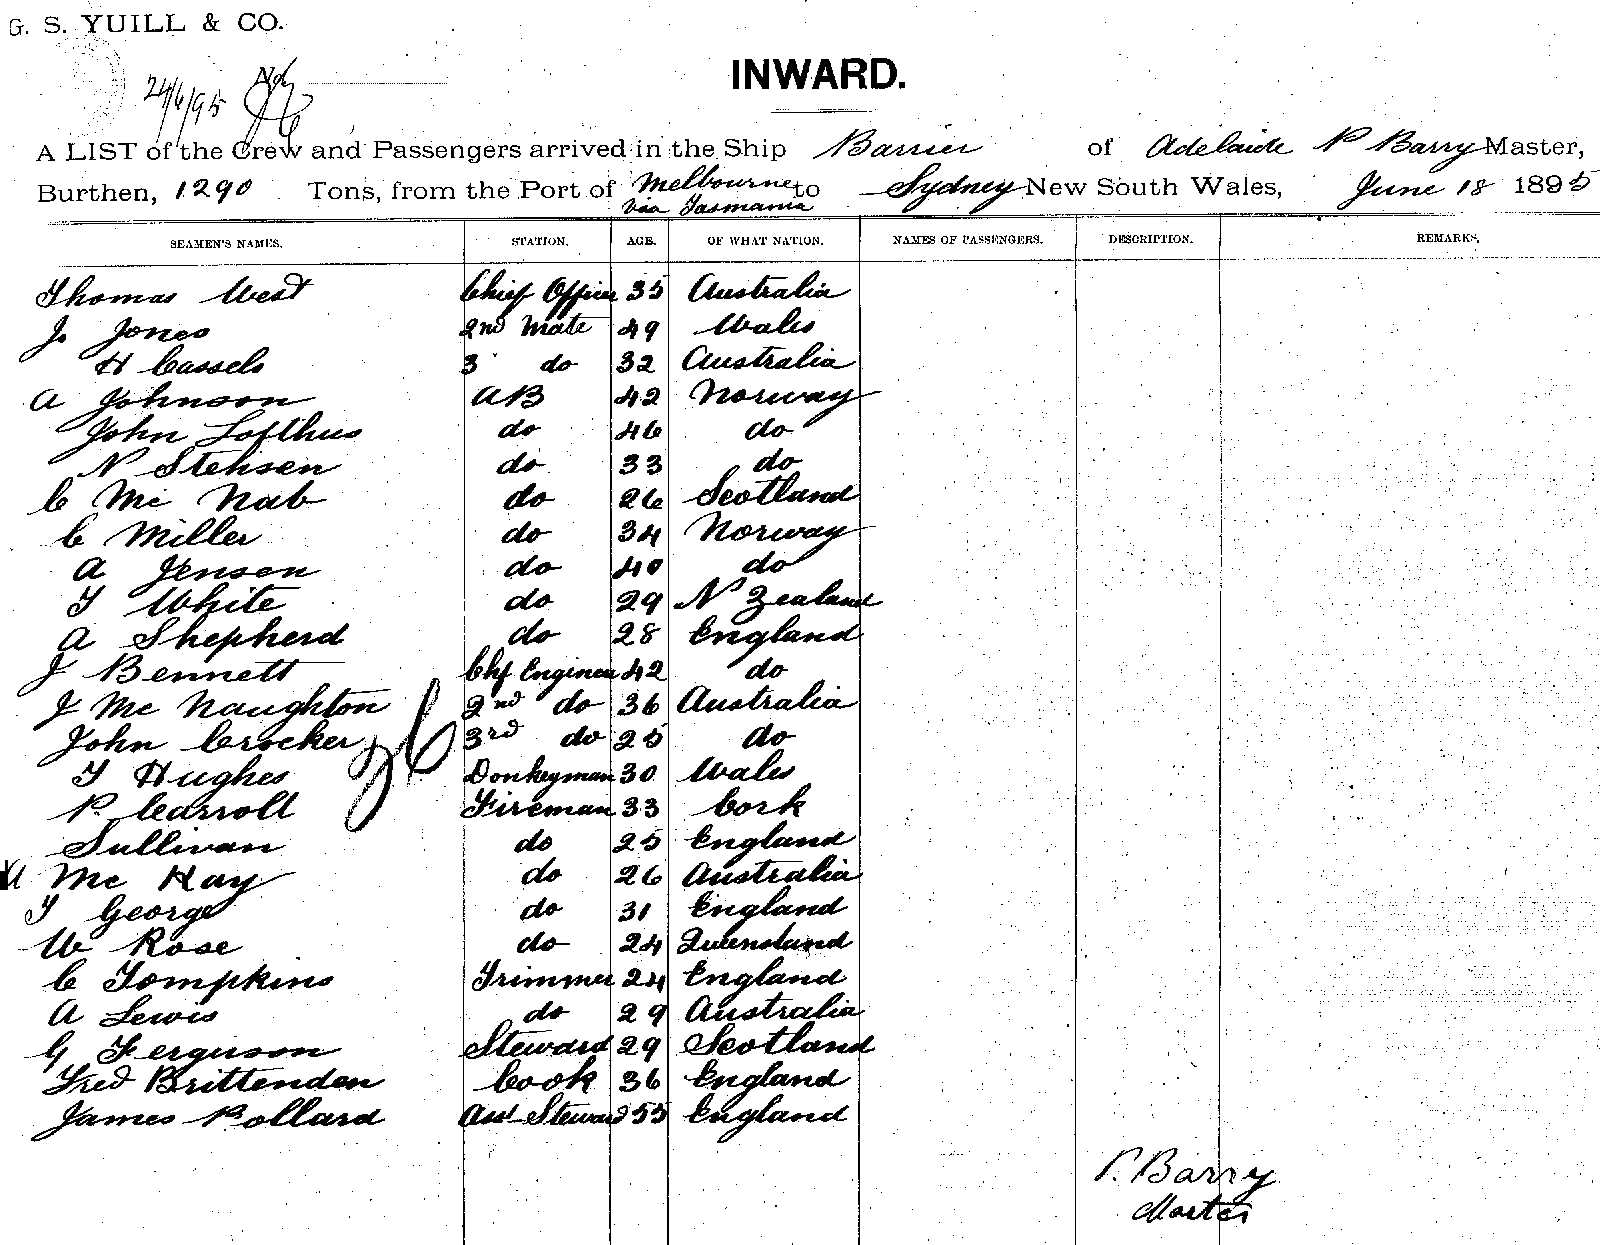 G. S. YUILL & CO.
24/6/95
INWARD.
A LIST of the Crew and Passengers arrived in the Ship Barrier of Adelaide P Barry Master,
Burthen, 1290 Tons, from the Port of Melbourne via Tasmania to Sydney New South Wales, June 18 1895
SEAMEN'S NAMES. STATION. AGE. OF WHAT NATION. NAMES OF PASSENGERS. DESCRIPTION. REMARKS.
Thomas West Chief Officer 35 Australia
J. Jones 2nd Mate 49 Wales
H Cassels 3 do 32 Australia
A Johnson AB 42 Norway
John Lofthus do 46 do
N Stensen do 33 do
C Mc Nab do 26 Scotland
C Miller do 34 Norway
A Jenson do 40 do
T White do 29 N Zealand
A Shepherd do 28 England
J Bennett Chf Engineer 42 do
J Mc Naughton 2nd do 36 Australia
John Crocker 3rd do 25 do
T Hughes Donkeyman 30 Wales
P. Carroll Fireman 33 Cork
Sullivan do 25 England
Mc Kay do 26 Australia
T George do 31 England
W Rose do 24 Queensland
C Tompkins Trimmer 24 England
A Lewis do 29 Australia
G Ferguson Steward 29 Scotland
Fred Brittenden Cook 36 England
James Pollard Asst Steward 55 England
P. Barry
Master